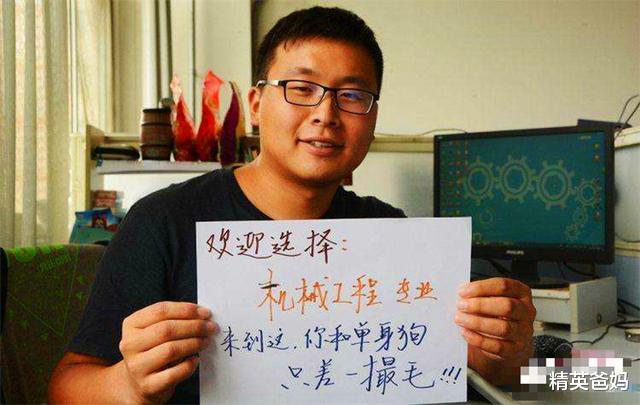 欢迎选择：
机械工程专业
来到这，你和单身狗
只差一撮毛!!!
PHILIPS
精英爸妈